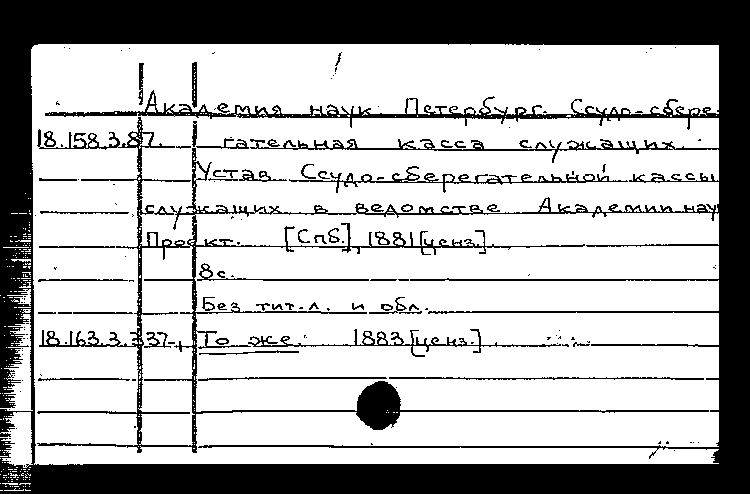 Академия наук. Петербург. Ссудо-сбере-
18.158.3.87. гательная касса служащих.
Устав Ссудо-сберегательной кассы
служащих в ведомстве Академии нау
Проект. [Спб.], 1881 [ценз.].
8с.
Без тит.л. и обл.
18.163.3.337-, То же. 1883 [ценз.].